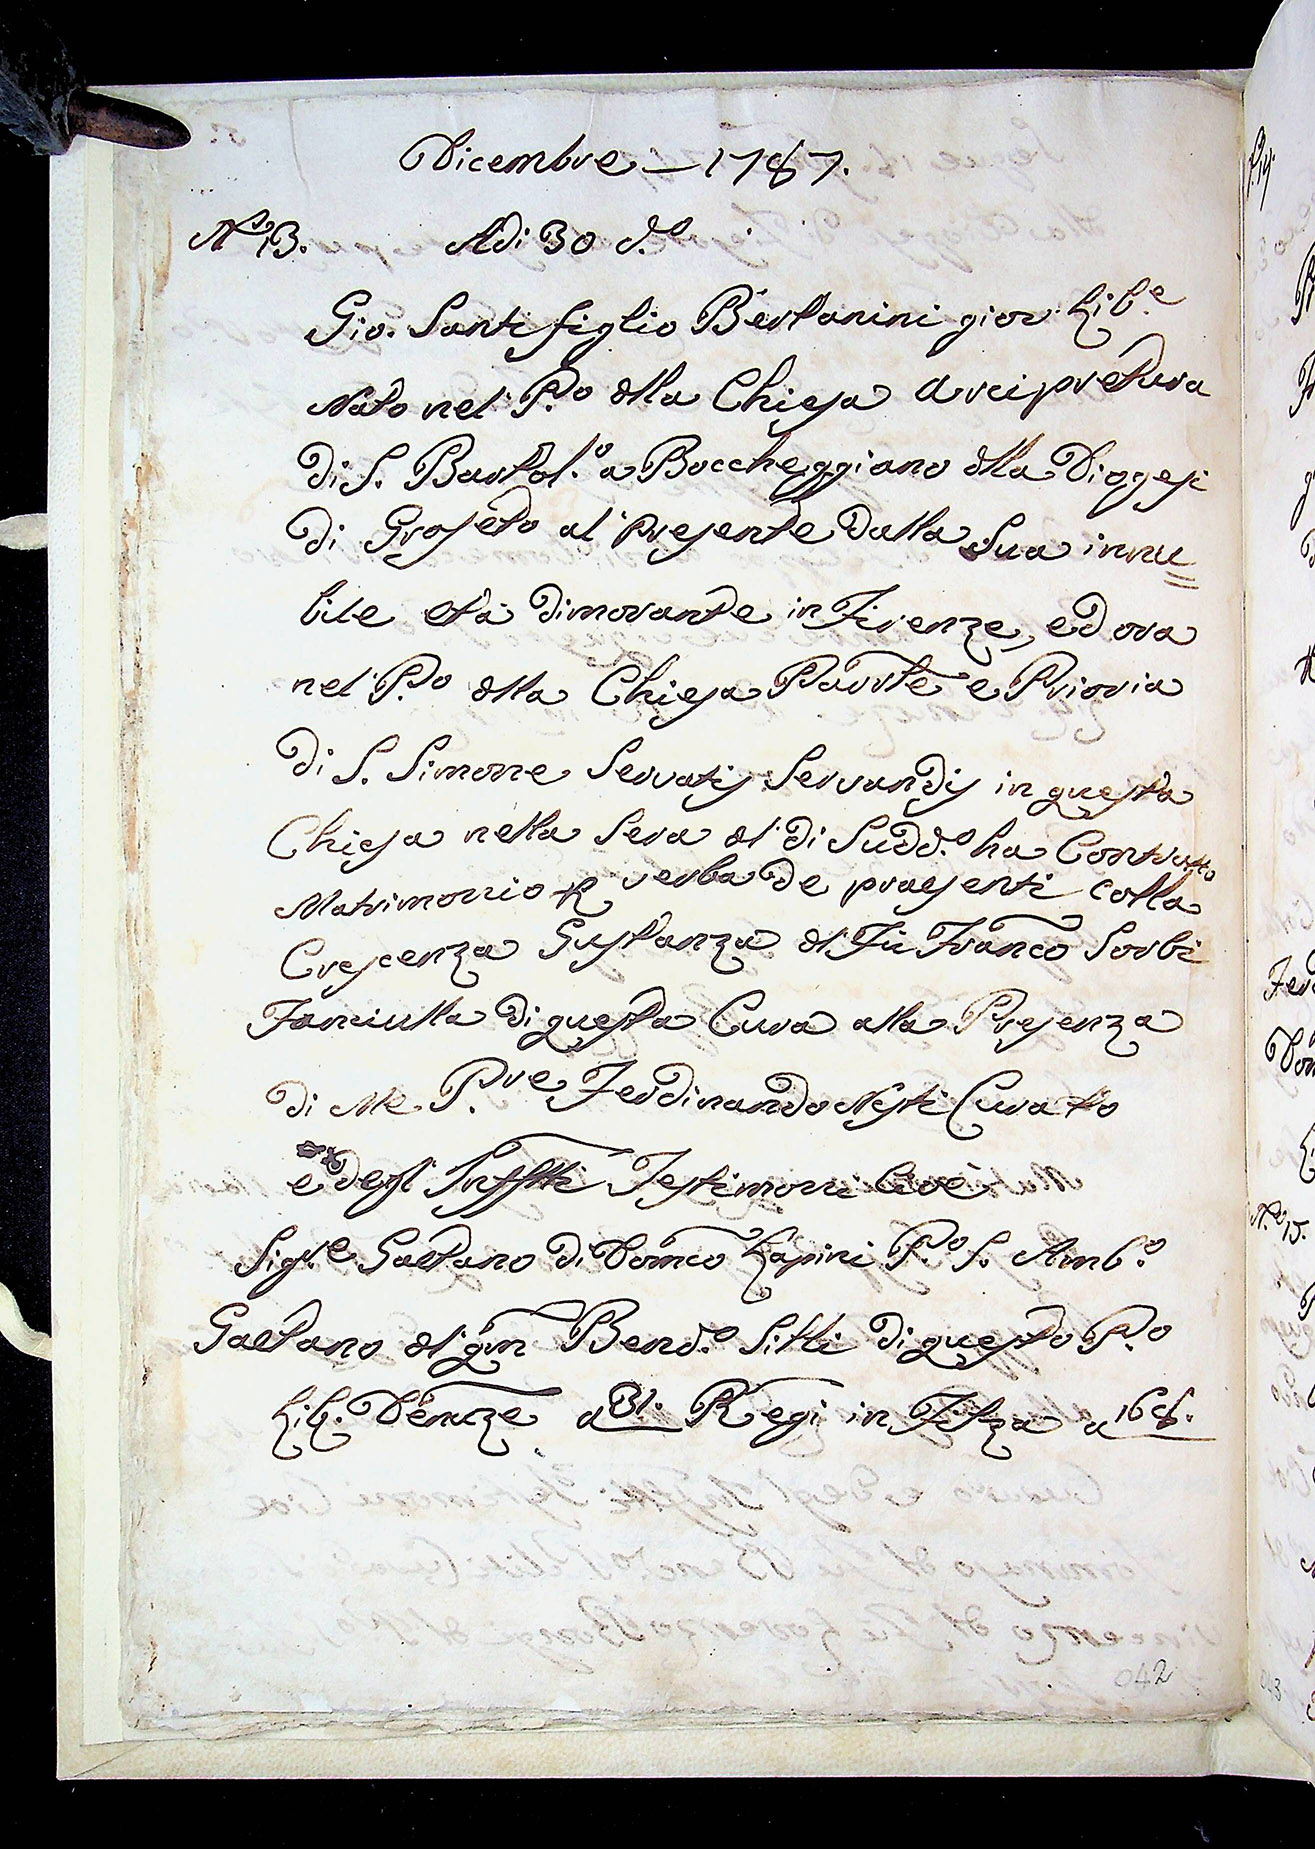 Dicembre — 1787.
N.º 13. Adi 30 d.º
Gio. Santi figlio Bertanini giov. Lib.e
Nato nel P.º dlla Chiesa Arcipretura
di S. Bartol.º a Boccheggiano dlla Diogesi
di Groseto al presente dalla Sua innu=
bile età dimorante in Firenze, ed ora
nel P.º dlla Chiesa Parrle e Prioria
di S. Simone Servatis Servandis in questa
Chiesa nella Sera dl di Sudd.º ha Contratto
Matrimonio p verba de praesenti colla
Crescenza Gustanza dl Fù Franco Sorbi
Fanciulla di questa Cura alla Presenza
di Me P.re Ferdinando Nesti Curato
e degl' Infstti Testimoni Cioè
Sig.re Gaetano di Domco Lapini P.º S. Amb.º
Gaetano dl qm Bend.º Sitti di questo P.º
Lib. Denze a 31. Regi in Filza a 168.
042